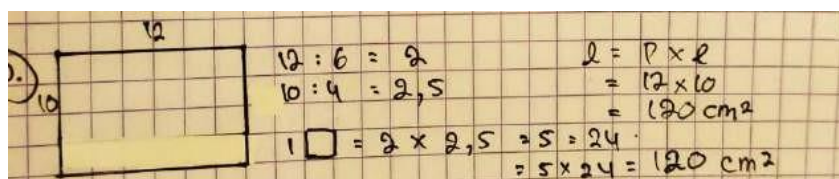 12
10
12 : 6 = 2
10 : 4 = 2,5
1 □ = 2 × 2,5 = 5 = 24
= 5 × 24 = 120 cm²
l = P × l
= 12 × 10
= 120 cm²